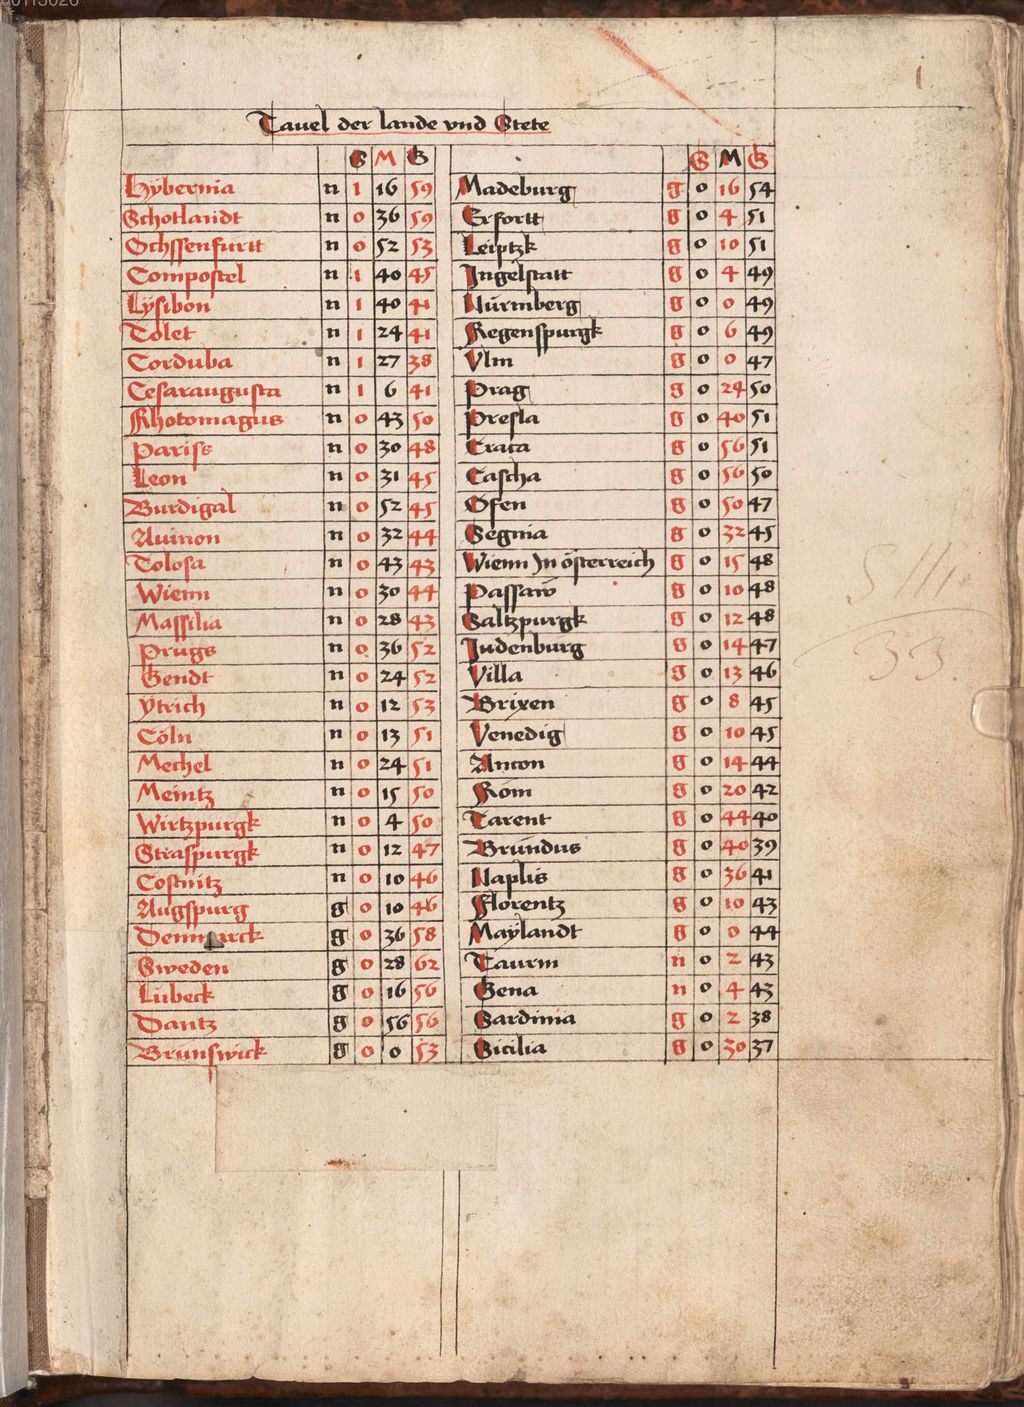 Tauel der lande vnd Stete
S M G
Hybernia n 1 16 59
Schotlandt n 0 36 59
Ochssenfurtt n 0 52 53
Compostel n 1 40 45
Lysibon n 1 40 41
Tolet n 1 24 41
Corduba n 1 27 38
Cesaraugusta n 1 6 41
Rhotomagus n 0 43 50
Pariss n 0 30 48
Leon n 0 31 45
Burdigal n 0 52 45
Auinon n 0 32 44
Tolosa n 0 43 43
Wienn n 0 30 44
Massilia n 0 28 43
Prugs n 0 36 52
Gendt n 0 24 52
Ytrich n 0 12 53
Cöln n 0 13 51
Mechel n 0 24 51
Meintz n 0 15 50
Wirtzpurgk n 0 4 50
Straspurgk n 0 12 47
Costnitz n 0 10 46
Augspurg g 0 10 46
Dennmarck g 0 36 58
Sweden g 0 28 62
Lübeck g 0 16 56
Dantz g 0 56 56
Brunswick g 0 0 53
S M G
Madeburg g 0 16 54
Erfortt g 0 4 51
Leiptzk g 0 10 51
Ingelstatt g 0 4 49
Nürmberg g 0 0 49
Regenspurgk g 0 6 49
Vlm g 0 0 47
Prag g 0 24 50
Presla g 0 40 51
Craca g 0 56 51
Cascha g 0 56 50
Ofen g 0 50 47
Segnia g 0 32 45
Wienn Jn österreich g 0 15 48
Passaw g 0 10 48
Saltzpurgk g 0 12 48
Judenburg g 0 14 47
Villa g 0 13 46
Brixen g 0 8 45
Venedig g 0 10 45
Ancon g 0 14 44
Rom g 0 20 42
Tarent g 0 44 40
Brundus g 0 40 39
Naplis g 0 36 41
Florentz g 0 10 43
Maylandt g 0 0 44
Taurm n 0 2 43
Gena n 0 4 43
Sardinia g 0 2 38
Sicilia g 0 30 37
1